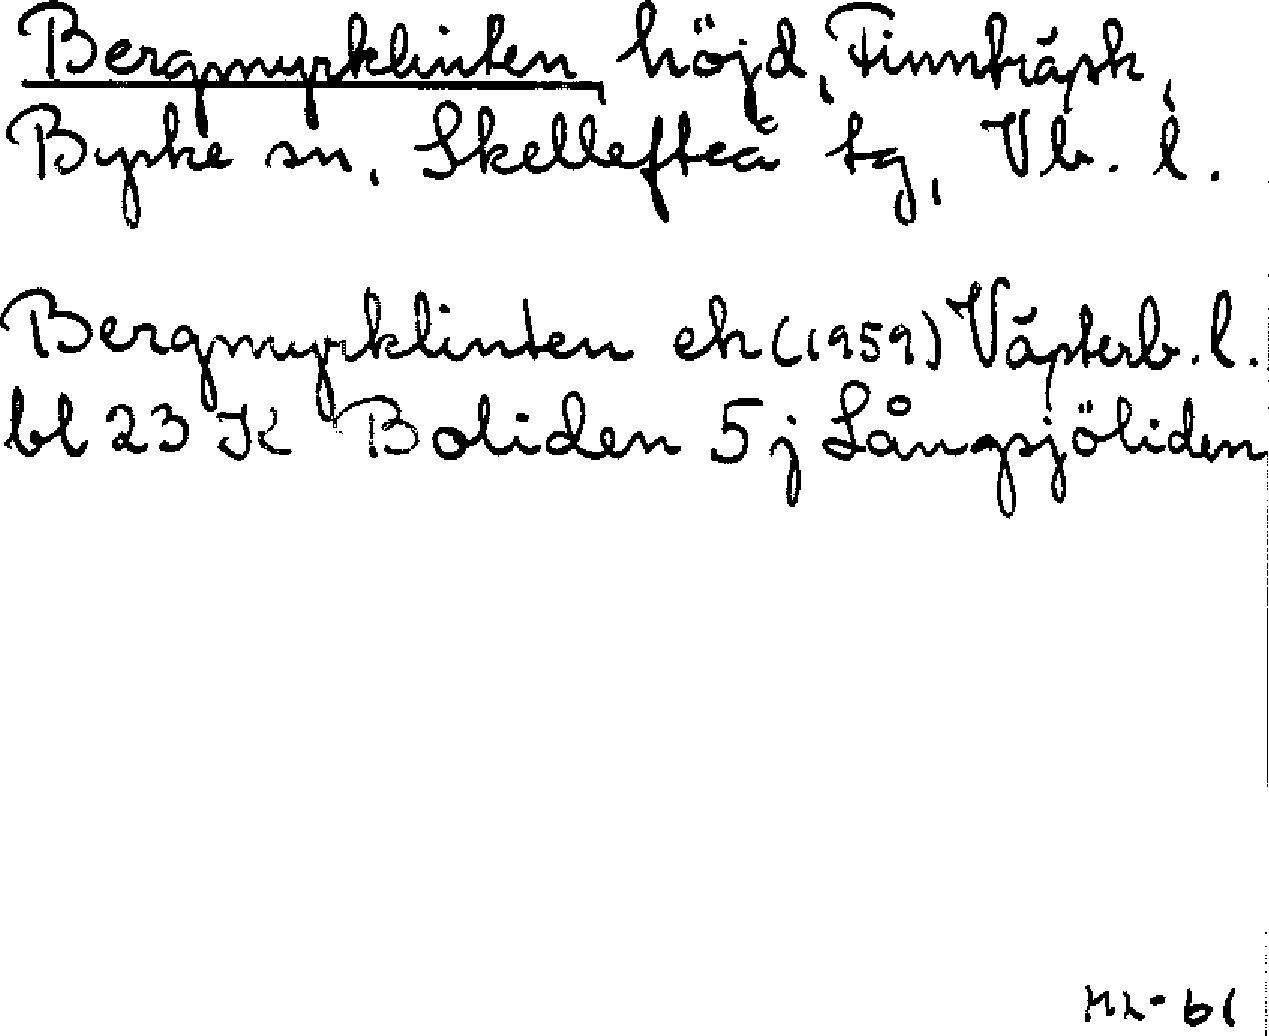 Bergmyrklinten, höjd, Finnträsk,
Byske sn, Skellefteå tg, Vb. l.
Bergmyrklinten ek (1959) Västerb. l.
bl 23 K Boliden 5 j Långsjöliden